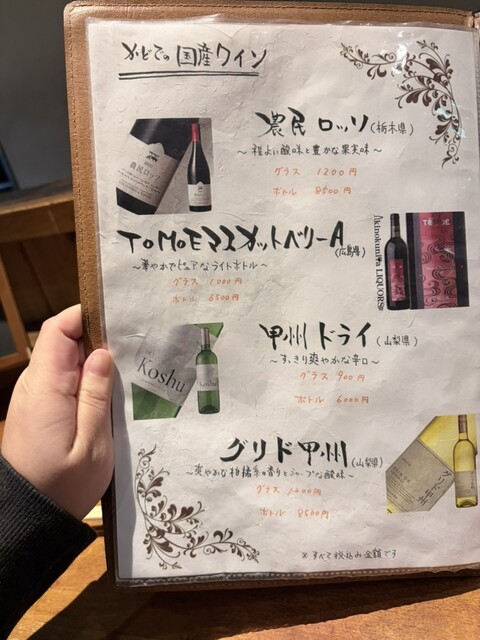 かどの 国産ワイン
農民 ロッソ (栃木県)
～ 程よい酸味と豊かな果実味 ～
グラス 1200 円
ボトル 8500 円
農民ロッソ
TOMOEマスカットベリーA
(広島県)
～華やかでピュアなライトボトル～
グラス 1000 円
ボトル 6500 円
Kinokuniya LIQUORS
TOMOE
甲州 ドライ (山梨県)
～ すっきり爽やかな辛口 ～
グラス 900 円
ボトル 6000 円
Koshu
グリド甲州 (山梨県)
～爽やかな柑橘系の香りとシャープな酸味～
グラス 1200 円
ボトル 8500 円
グリド甲州
※ すべて税込み金額です